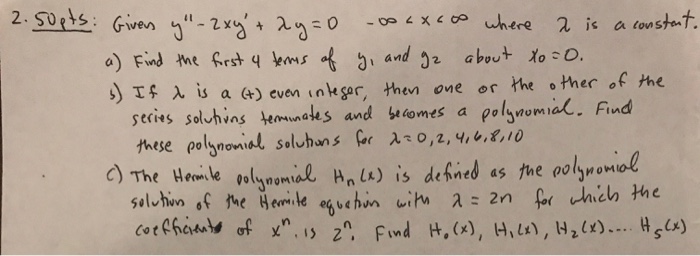 2. 50pts: Given y'' - 2xy' + λy = 0 -∞ < x < ∞ where λ is a constant.
a) Find the first 4 terms of y₁ and y₂ about x₀ = 0.
b) If λ is a (+) even integer, then one or the other of the
series solutions terminates and becomes a polynomial. Find
these polynomial solutions for λ = 0, 2, 4, 6, 8, 10
c) The Hermite polynomial Hₙ(x) is defined as the polynomial
solution of the Hermite equation with λ = 2n for which the
coefficients of xⁿ is 2ⁿ. Find H₀(x), H₁(x), H₂(x).... H₅(x)